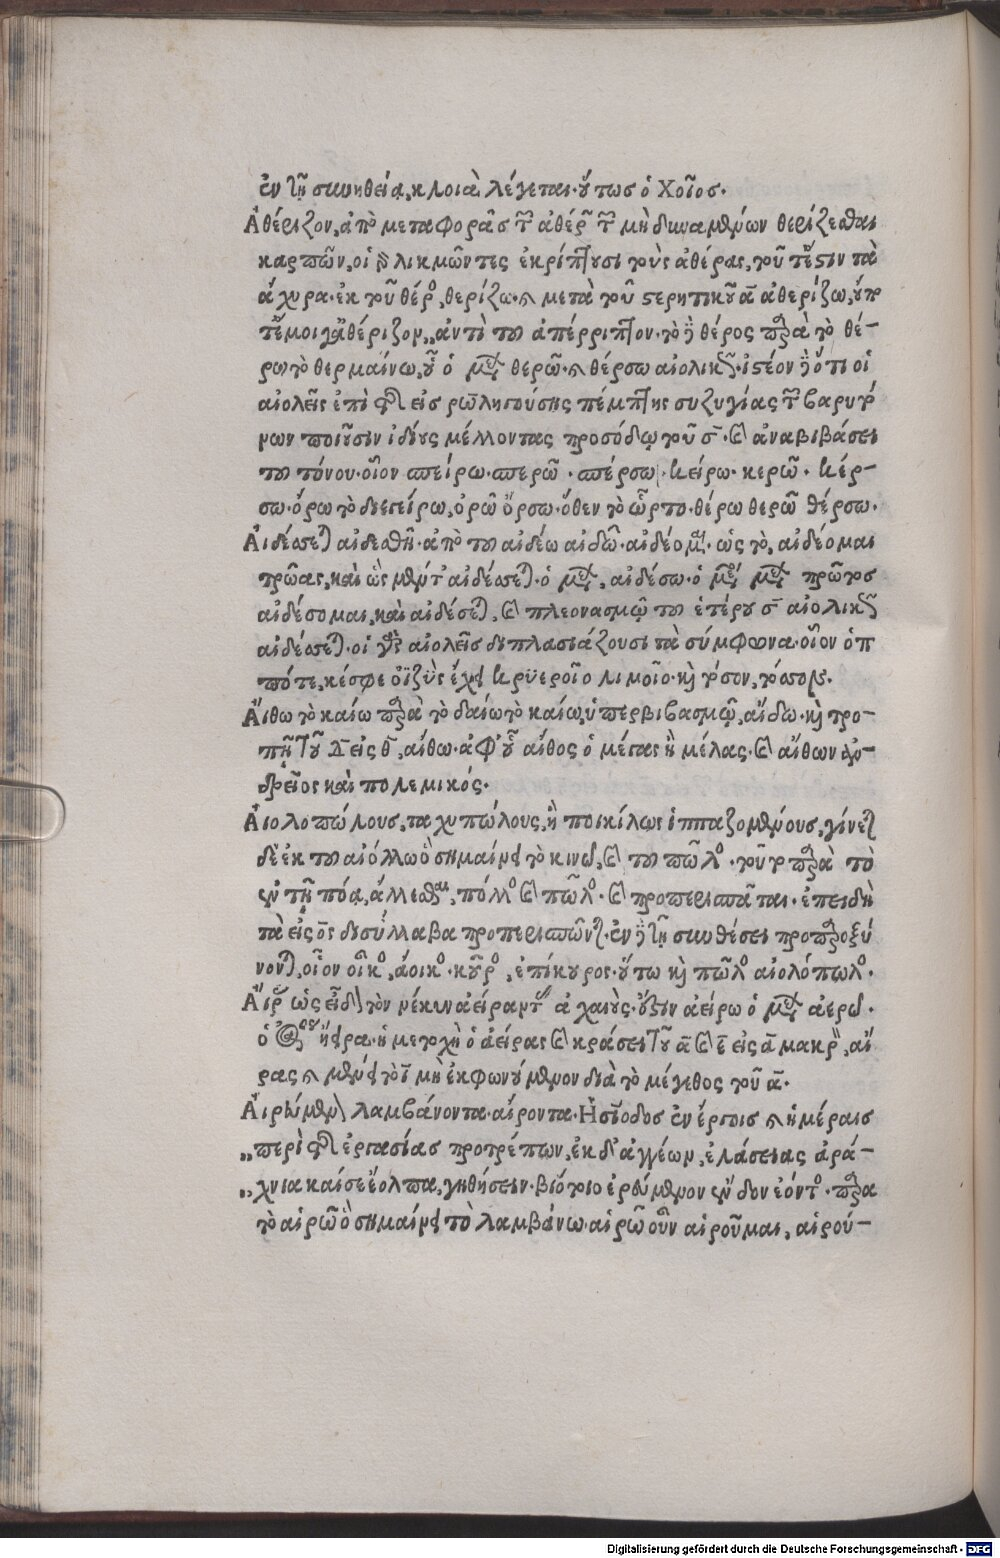 ἐν τῇ συνηθείᾳ, κλοιὰ λέγεται· οὕτως ὁ Χοῖρος.
Ἀθέριζον, ἀπὸ μεταφορᾶς τῶν ἀθέρων τῶν μὴ δυναμένων θερίζεσθαι
καρπῶν, οἱ γὰρ λικμῶντες ἐκρίπτουσι τοὺς ἀθέρας, τουτέστιν τὰ
ἄχυρα· ἐκ τοῦ θέρος, θερίζω· καὶ μετὰ τοῦ στερητικοῦ α ἀθερίζω,
ἀθέριζον, ἀντὶ τοῦ ἀπέρριπτον· τὸ δὲ θέρος παρὰ τὸ θέ-
ρω τὸ θερμαίνω, οὗ ὁ μέλλων θερῶ· καὶ θέρσω αἰολικῶς· ἰστέον δὲ ὅτι οἱ
αἰολεῖς ἐπὶ τῆς εἰς ρω ληγούσης πέμπτης συζυγίας τῶν βαρυτό
νων ποιοῦσιν ἰδίους μέλλοντας προσόδῳ τοῦ σ· καὶ ἀναβιβάσει
τοῦ τόνου· οἷον σπείρω· σπερῶ· σπέρσω· κείρω· κερῶ· κέρ-
σω· ὄρω τὸ διεγείρω, ὀρῶ ὄρσω· ὅθεν τὸ ὦρτο· θέρω θερῶ θέρσω.
Αἰδέσσεται αἰδεσθῇ· ἀπὸ τοῦ αἰδέω αἰδῶ· αἰδέομαι· ὡς τὸ, αἰδέομαι
τρῶας, καὶ ὣς μὲν τ' αἰδέσσεται· ὁ μέλλων, αἰδέσω· ὁ μέσος μέλλων πρῶτος
αἰδέσομαι, καὶ αἰδέσεται, καὶ πλεονασμῷ τοῦ ἑτέρου σ αἰολικῶς
αἰδέσσεται· οἱ γὰρ αἰολεῖς διπλασιάζουσι τὰ σύμφωνα· οἷον ὁπ
πότε, κέσφε ὀϊζὺς ἔχει κρυεροῖο λιμοῖο· καὶ τόσον,
Αἴθω τὸ καίω παρὰ τὸ δαίω τὸ καίω, ὑπερβιβασμῷ, αἴδω· καὶ τρο-
πῇ τοῦ δ εἰς θ, αἴθω· ἀφ' οὗ αἶθος ὁ μέγας ἢ μέλας· καὶ αἴθων ἀν-
δρεῖος καὶ πολεμικός.
Αἰολοπώλους, ταχυπώλους, ἢ ποικίλως ἱππαζομένους, γίνεται
δὲ ἐκ τοῦ αἰόλλω ὃ σημαίνει τὸ κινῶ, καὶ τοῦ πῶλος· τοῦτο παρὰ τὸ
ἐν τῇ πόᾳ, ἅλλεσθαι, πόλλος καὶ πῶλος· καὶ προπερισπᾶται· ἐπειδὴ
τὰ εἰς ος δισύλλαβα προπερισπῶνται· ἐν δὲ τῇ συνθέσει προπαροξύ
νονται, οἷον οἶκος, ἄοικος· κῦρος, ἐπίκυρος· οὕτω καὶ πῶλος αἰολόπωλος.
Αἴρων ὡς εἶδε τὸν νέκυν ἀείραντας ἀχαιούς· ἔστιν ἀείρω ὁ μέλλων ἀερῶ·
ὁ ἀόριστος ἤειρα· ἡ μετοχὴ ὁ ἀείρας καὶ κράσει τοῦ α καὶ ε εἰς α μακρὸν, αἴ
ρας καὶ μένει τὸ ι μὴ ἐκφωνούμενον διὰ τὸ μέγεθος τοῦ α.
Αἱρεύμενον λαμβάνοντα· αἴροντα· Ἡσίοδος ἐν ἔργοις καὶ ἡμέραις
„περὶ τῆς ἐργασίας προτρέπων, ἐκ δ' ἀγγέων, ἐλάσειας ἀρά-
„χνια καί σε ἔολπα, γηθήσειν· βιότοιο ἐρεύμενον ἔνδον ἐόντος· παρὰ
τὸ αἱρῶ ὃ σημαίνει τὸ λαμβάνω· αἱρῶ οὖν αἱροῦμαι, αἱρού-
Digitalisierung gefördert durch die Deutsche Forschungsgemeinschaft - DFG